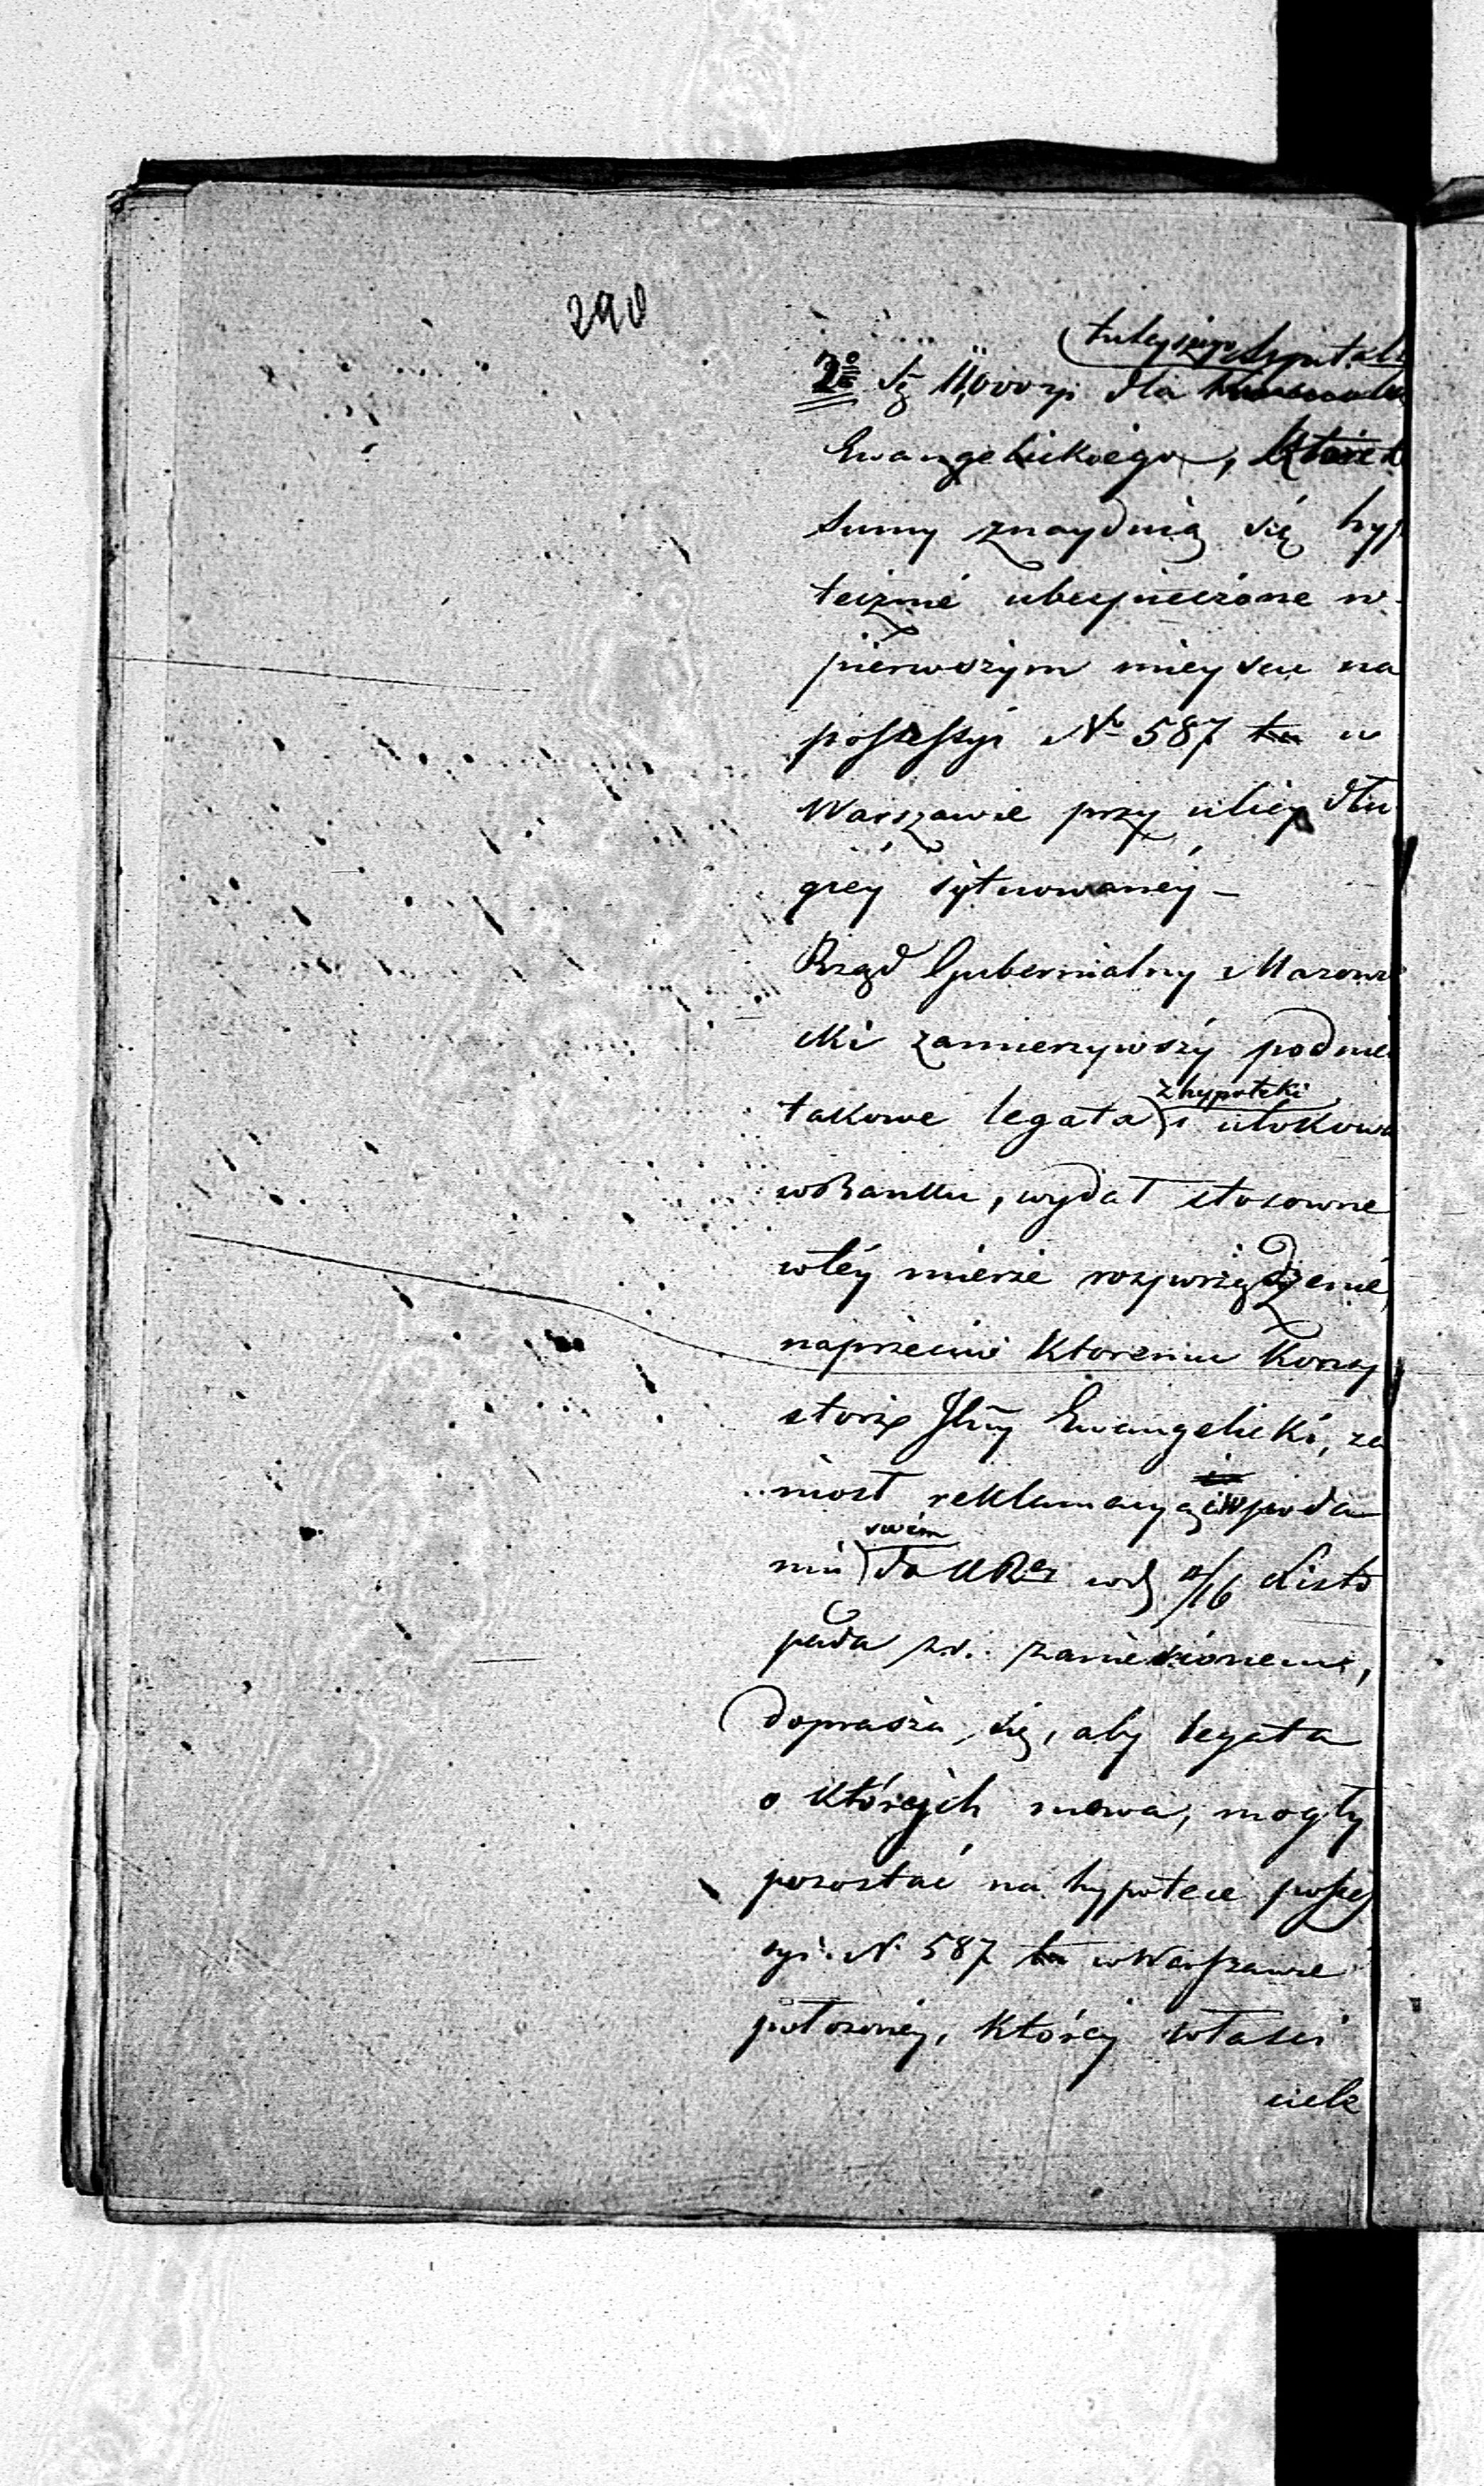 290
tuteyszego Szpitalu
2º Sę 11,000 zp dla
Ewangelickiego, które
sumy znayduią się hyp
teiznié ubezpieczone w
pierwszym mieyscu na
possessyi Nº 587 tu w
Warszawie przy ulicy dłu
giéy sytuowanéy –
Rząd Gubernialny Mazowie
cki zamierzywszy podnie
z hypoteki
takowe legata i ulokowa
w Banku, wydał stosowne
w téy mierze rozporządzenie,
naprzeciw któremu Konsy
storz Jlny Ewangelicki, za
niosł reklamacyą i w poda
swém
niu do KR w d 4/16 Listo
pada r.z. zaniesionem,
doprasza się, aby legata
o których mowa, mogły
pozostać na hypotece posses
syi N. 587 tu w Warszawie
położonéy, któréy właści
ciele